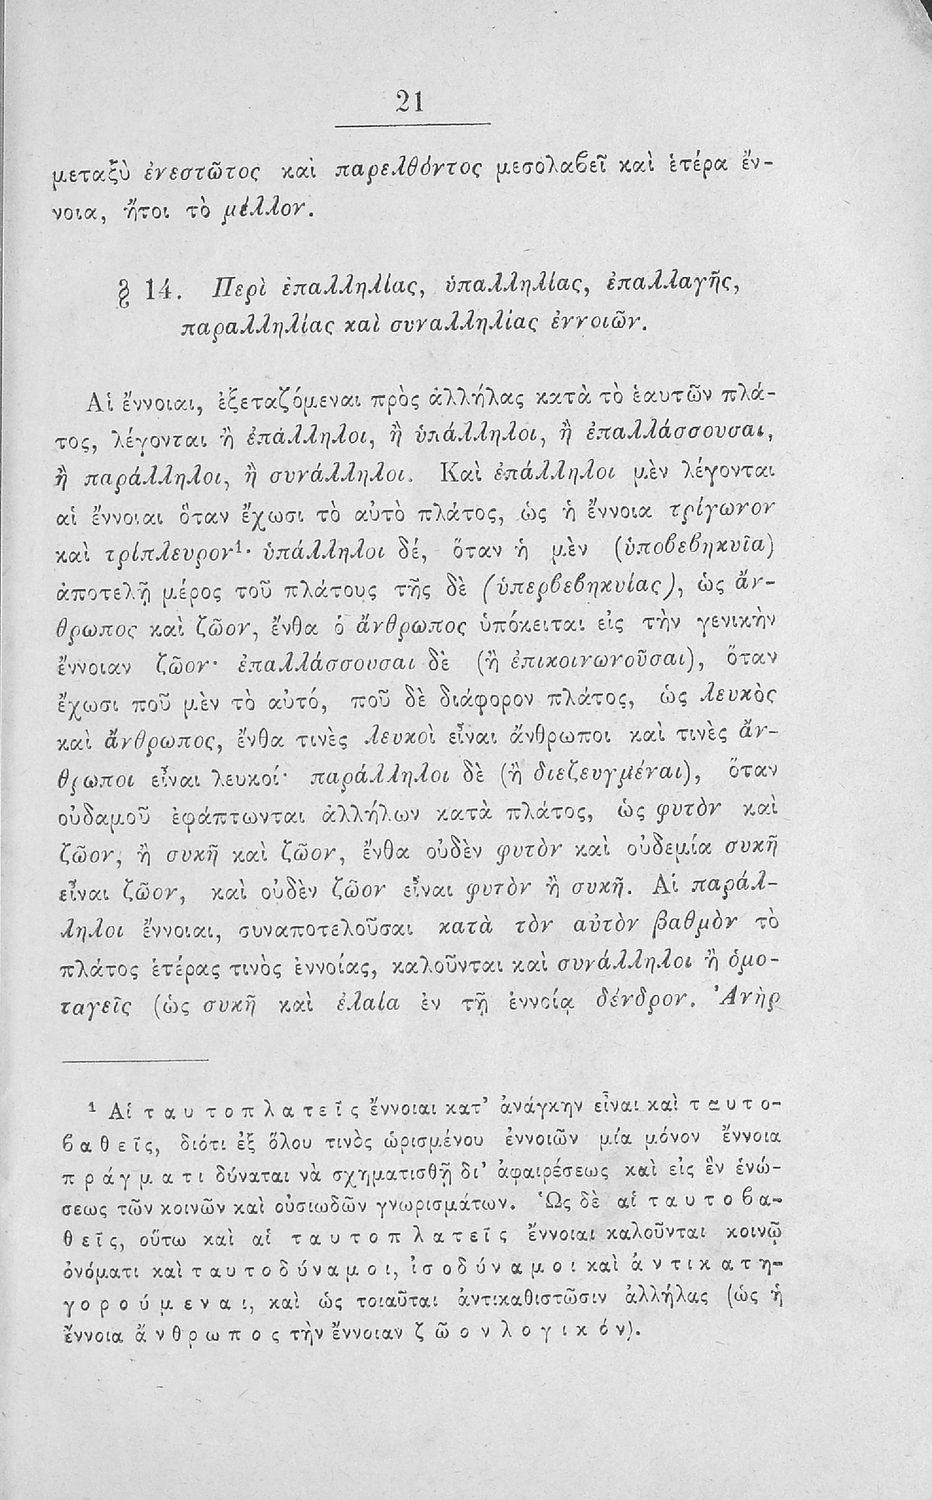 21
μεταξὺ ἐνεστῶτος καὶ παρελθόντος μεσολαβεῖ καὶ ἑτέρα ἔν-
νοια, ἤτοι τὸ μέλλον.
§ 14. Περὶ ἐπαλληλίας, ὑπαλληλίας, ἐπαλλαγῆς,
παραλληλίας καὶ συναλληλίας ἐννοιῶν.
Αἱ ἔννοιαι, ἐξεταζόμεναι πρὸς ἀλλήλας κατὰ τὸ ἑαυτῶν πλά-
τος, λέγονται ἢ ἐπάλληλοι, ἢ ὑπάλληλοι, ἢ ἐπαλλάσσουσαι,
ἢ παράλληλοι, ἢ συνάλληλοι. Καὶ ἐπάλληλοι μὲν λέγονται
αἱ ἔννοιαι ὅταν ἔχωσι τὸ αὐτὸ πλάτος, ὡς ἡ ἔννοια τρίγωνον
καὶ τρίπλευρον¹· ὑπάλληλοι δέ, ὅταν ἡ μὲν (ὑποβεβηκυῖα)
ἀποτελῇ μέρος τοῦ πλάτους τῆς δὲ (ὑπερβεβηκυίας), ὡς ἄν-
θρωπος καὶ ζῶον, ἔνθα ὁ ἄνθρωπος ὑπόκειται εἰς τὴν γενικὴν
ἔννοιαν ζῶον· ἐπαλλάσσουσαι δὲ (ἢ ἐπικοινωνοῦσαι), ὅταν
ἔχωσι ποῦ μὲν τὸ αὐτό, ποῦ δὲ διάφορον πλάτος, ὡς λευκὸς
καὶ ἄνθρωπος, ἔνθα τινὲς λευκοὶ εἶναι ἄνθρωποι καὶ τινὲς ἄν-
θρωποι εἶναι λευκοί· παράλληλοι δὲ (ἢ διεζευγμέναι), ὅταν
οὐδαμοῦ ἐφάπτωνται ἀλλήλων κατὰ πλάτος, ὡς φυτὸν καὶ
ζῶον, ἢ συκῆ καὶ ζῶον, ἔνθα οὐδὲν φυτὸν καὶ οὐδεμία συκῆ
εἶναι ζῶον, καὶ οὐδὲν ζῶον εἶναι φυτὸν ἢ συκῆ. Αἱ παράλ-
ληλοι ἔννοιαι, συναποτελοῦσαι κατὰ τὸν αὐτὸν βαθμὸν τὸ
πλάτος ἑτέρας τινὸς ἐννοίας, καλοῦνται καὶ συνάλληλοι ἢ ὁμο-
ταγεῖς (ὡς συκῆ καὶ ἐλαία ἐν τῇ ἐννοίᾳ δένδρον. Ἀνὴρ
¹ Αἱ ταυτοπλατεῖς ἔννοιαι κατ' ἀνάγκην εἶναι καὶ ταυτο-
βαθεῖς, διότι ἐξ ὅλου τινὸς ὡρισμένου ἐννοιῶν μία μόνον ἔννοια
πράγματι δύναται νὰ σχηματισθῇ δι' ἀφαιρέσεως καὶ εἰς ἓν ἑνώ-
σεως τῶν κοινῶν καὶ οὐσιωδῶν γνωρισμάτων. Ὡς δὲ αἱ ταυτοβα-
θεῖς, οὕτω καὶ αἱ ταυτοπλατεῖς ἔννοιαι καλοῦνται κοινῷ
ὀνόματι καὶ ταυτοδύναμοι, ἰσοδύναμοι καὶ ἀντικατη-
γορούμεναι, καὶ ὡς τοιαῦται ἀντικαθιστῶσιν ἀλλήλας (ὡς ἡ
ἔννοια ἄνθρωπος τὴν ἔννοιαν ζῶον λογικόν).